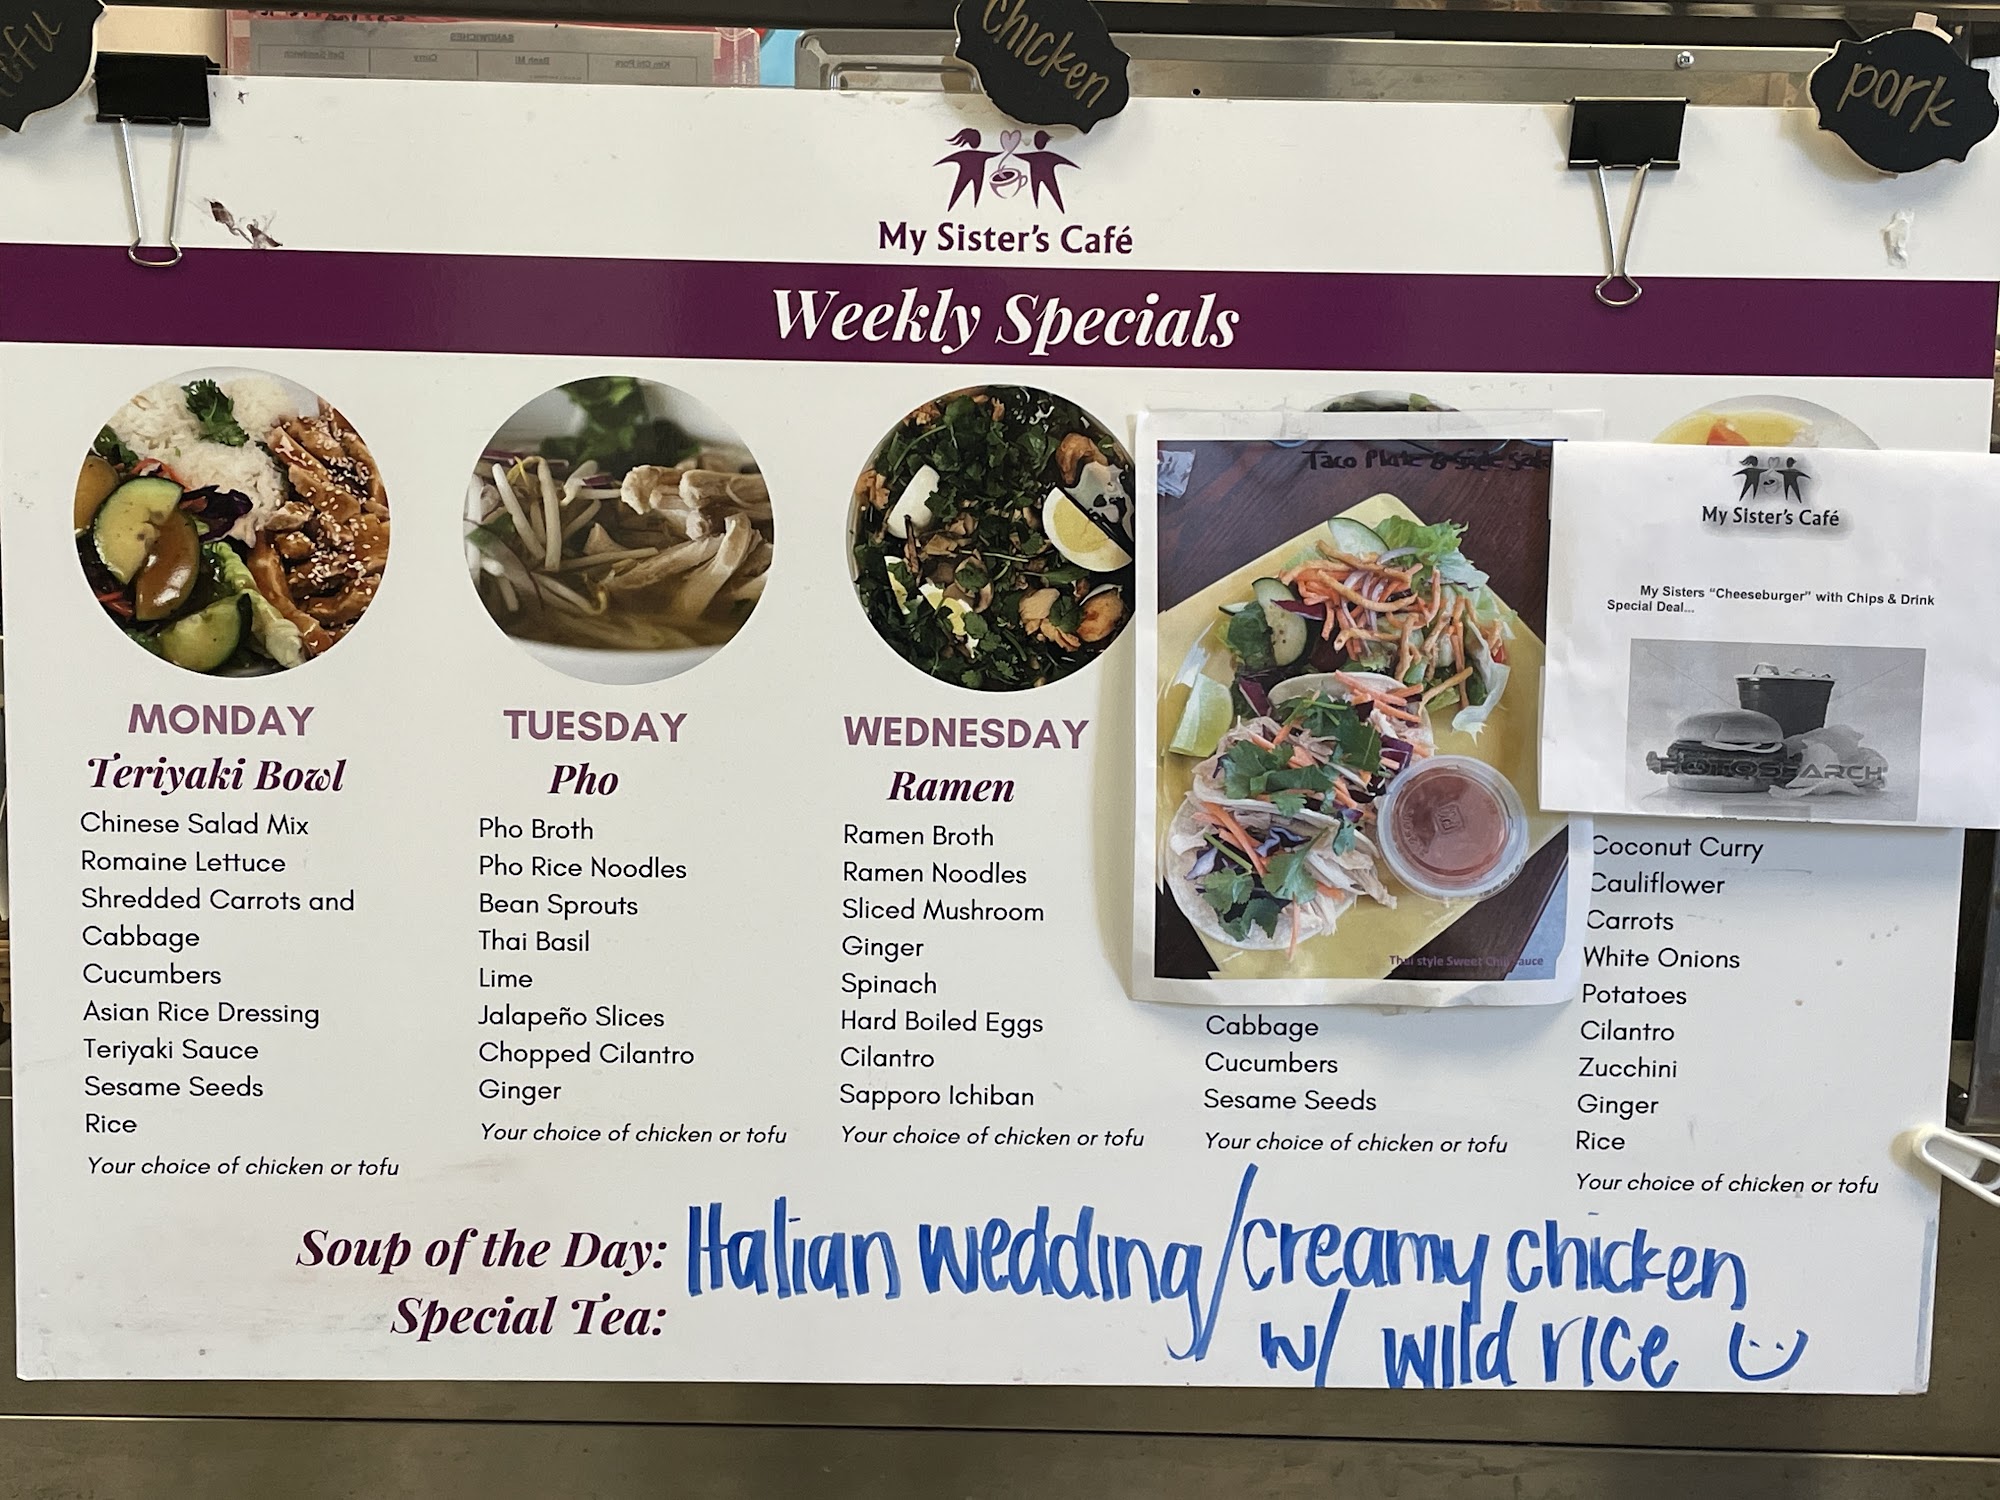 chicken
pork
SANDWICHES
My Sister's Café
Weekly Specials
MONDAY
Teriyaki Bowl
Chinese Salad Mix
Romaine Lettuce
Shredded Carrots and
Cabbage
Cucumbers
Asian Rice Dressing
Teriyaki Sauce
Sesame Seeds
Rice
Your choice of chicken or tofu
TUESDAY
Pho
Pho Broth
Pho Rice Noodles
Bean Sprouts
Thai Basil
Lime
Jalapeño Slices
Chopped Cilantro
Ginger
Your choice of chicken or tofu
WEDNESDAY
Ramen
Ramen Broth
Ramen Noodles
Sliced Mushroom
Ginger
Spinach
Hard Boiled Eggs
Cilantro
Sapporo Ichiban
Your choice of chicken or tofu
Taco Plate & Side
Thai style Sweet
Cabbage
Cucumbers
Sesame Seeds
Your choice of chicken or tofu
My Sister's Café
My Sisters "Cheeseburger" with Chips & Drink
Special Deal...
FOTOSEARCH
Coconut Curry
Cauliflower
Carrots
White Onions
Potatoes
Cilantro
Zucchini
Ginger
Rice
Your choice of chicken or tofu
Soup of the Day: Italian wedding/creamy chicken
w/ wild rice
Special Tea: